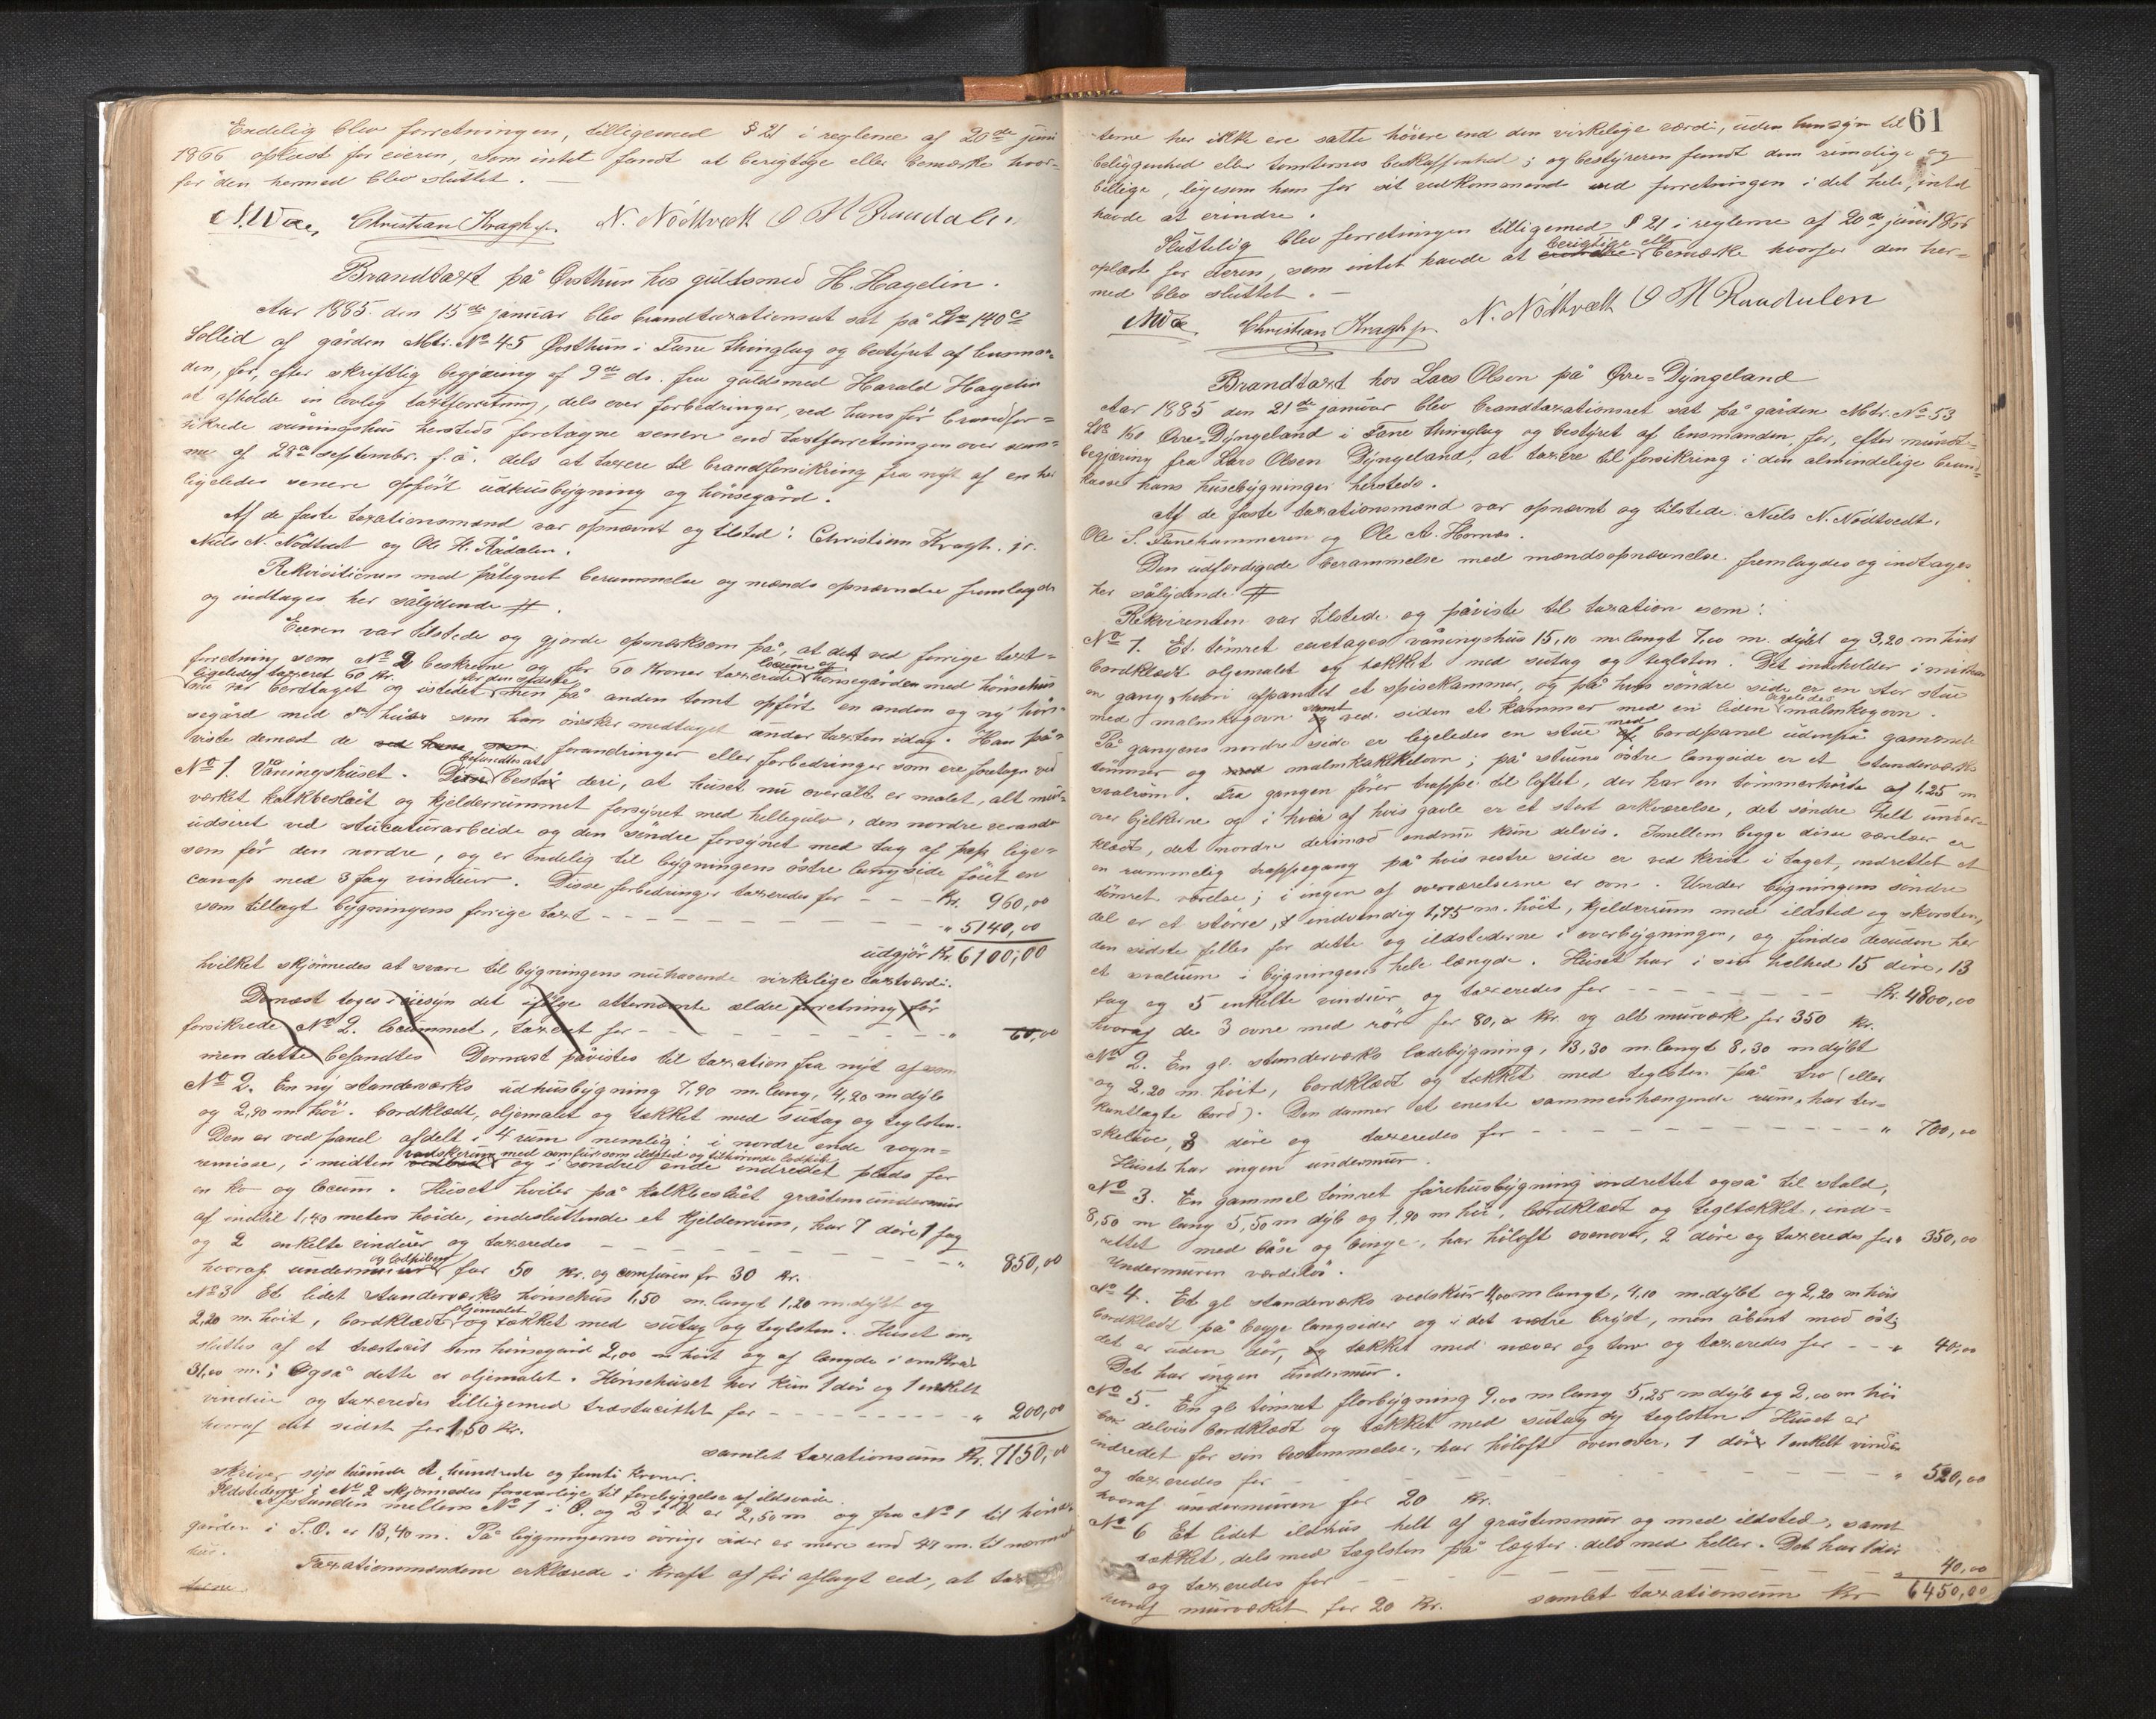 Endelig blev forretningen, tilligemed § 21 i reglerne af 20de juni
1866 oplæst for eieren, som intet fandt at berigtige eller bemærke hvor-
for den hermed blev sluttet.
Christian Kragh jr. N. Nödtvedt O H Raadalen
Brandtaxt på Øvsthun hos guldsmed H. Hagelin.
Aar 1885 den 15de januar blev brandtaxationsret sat på Lno 140c
Sollid af gården Mtr. No 45 Øvsthun i Fane thinglag og bestyret af lensman-
den, for, efter skriftlig begjæring af 9de ds. fra guldsmed Harald Hagelin
at afholde en lovlig taxtforretning, dels over forbedringer, ved hans för brandfor-
sikrede våningshus herstеds foretagne senere end taxtforretningen over sam-
me af 28de septembr. f. å. dels at taxere til brandforsikring fra nyt af en her
ligeledes senere opfört udhusbygning og hönsegård.
Af de faste taxationsmænd var opnævnt og tilsted: Christian Kragh jr.
Niels N. Nödtvedt og Ole H. Rådalen.
Rekvisitionen med påtegnet berammelse og mænds opnævnelse fremlagdes
og indtages her sålydende #.
Eieren var tilstede og gjorde opmærksom på, at det ved forrige taxt-
forretning som No 2 beskrevne og for 60 Kroner taxerede locum og hönsegården med hönsehus
ligeledes taxeret 60 Kr. for den sidste
nu var borttaget og istedet men på anden tomt opfört en anden og ny hön-
segård med hus som han önsker medtaget under taxten idag. Han på-
viste dernæst de forandringer eller forbedringer som ere foretagne ved
No 1. Våningshuset. Disse befandtes at bestå deri, at huset nu overalt er malet, alt mur-
værket kalkbeslået og kjelderrummet forsynet med hellegulv, den nordre veranda
udseret ved stucaturarbeide og den söndre forsynet med tag af pap lige-
som för den nordre, og er endelig til bygningens östre langside föiet en
canap med 3 fag vinduer. Disse forbedringer taxeredes for - - - Kr. 960,00
som tillagt bygningens forrige taxt - - - - " 5140,00
udgjör Kr. 6100,00
hvilket skjönnedes at svare til bygningens nuhavende virkelige taxtværdi.
Dernæst toges i öiesyn det ifölge atternævnte ældre forretning för
forsikrede No 2. Locummet, taxeret for - - - - " 60,00
men dette befandtes Dernæst påvistes til taxation fra nyt af som
No 2. En ny standerværks udhusbygning 7,90 m. lang, 4,20 m dyb
og 2,20 m. höi. bordklædt, oljemalet og tækket med sutag og teglsten.
Den er ved panel afdelt i 4 rum nemlig: i nordre ende vogn-
remisse, i midten vedskur og i söndre ende indredet plads for
en ko og locum. Huset hviler på kalkbeslåет gråstensundermur
af indtil 1,40 meters höide, indesluttende et kjelderrum, har 7 döre 1 fag
og 2 enkelte vinduer og taxeredes - - - - " 850,00
hvoraf undermuren for 50 Kr. og comfuren for 30 Kr.
No 3 Et lidet standerværks hönsehus 1,50 m. langt 1,20 m. dybt og
2,20 m. höit, bordklædt, oljemalet og tækket med sutag og teglsten. Huset om-
sluttes af et træstacit som hönsegård 2,00 m höit og af længde i omkreds
31,00 m.; også dette er oljemalet. Hönsehuset har kun 1 dör og 1 enkelt
vindue og taxeredes tilligemed træstacittet for - - - - " 200,00
hvoraf det sidst for 150 Kr.
samlet taxationsum Kr. 7150,00
skriver syv tusinde et hundrede og femti Kroner.
Ildstederne i No 2 skjönnedes forsvarlige til forebyggelse af ildsvåde.
Afstanden mellem No 1 i Ø. og 2 i V er 2,50 m og fra No 1 til hönse-
gården i S.O. er 13,40 m. På bygningernes övrige sider er mere end 47 m. til nærmeste
hus.
Taxationsmændene erklærede i kraft af för aflagt eed, at tax-
terne
61
terne her ikke ere satte höiere end den virkelige værdi, uden hensyn til
beliggenhed eller tomternes beskaffenhed; og bestyreren fandt dem rimelige og
billige, ligesom han for sit vedkommende ved forretningen i det hele, intet
havde at erindre.
Sluttelig blev forretningen tilligemed § 21 i reglerne af 20de juni 1866
oplæst for eieren, som intet havde at berigtige eller bemærke hvorfor den her-
med blev sluttet.
Christian Kragh jr. N. Nödtvedt O H Raadalen
Brandtaxt hos Lars Olsen på Øvre-Dyngeland
Aar 1885 den 21de januar blev brandtaxationsret sat på gården Mtr. No 53
Øvre-Dyngeland i Fane thinglag og bestyret af lensmanden, for, efter mundt-
begjæring fra Lars Olsen Dyngeland, at taxere til forsikring i den almindelige brand-
kasse hans husebygninger hersteds.
Af de faste taxationsmænd var opnævnt og tilstede Niels N. Nödtvedt,
Ole S. Fanehammeren og Ole A. Hornæs.
Den udfærdigede berammelse med mændsopnævnelse fremlagdes og indtages
her sålydende #
Rekvirenten var tilstede og påviste til taxation som:
No 1. Et tömret enetages våningshus 15,10 m. langt 7,00 m. dybt og 3,20 m höit
bordklædt oljemalet og tækket med sutag og teglsten. Det indeholder i midten
en gang, hvori afpanelt et spisekammer, og på hvis söndre side er en stor stue
med malmkogovn samt ved siden et kammer med en liden ligeledes malmkogovn.
På gangens nordre side er ligeledes en stue med bordpanel udenpå gammelt
tömmer og malmkakkelovn; på stuens östre langside er et standerværks
svalrum. Fra gangen förer trappe til loftet, der har en tömmerhöide af 1,25 m
over bjelkerne og i hver af hvis gavle er et stort arkværelse, det söndre helt under-
klædt, det nordre derimod endnu kun delvis. Imellem begge disse værelser er
en rummelig trappegang på hvis vestre side er ved kvist i taget, indrettet et
tömret værelse; i ingen af overværelserne er ovn. Under bygningens söndre
del er et större, indvendig 1,75 m. höit, kjelderrum med ildsted og skorsten,
den sidste fælles for dette og ildstederne i overbygningen, og findes desuden her
et svalrum i bygningens hele længde. Huset har i sin helhed 15 döre, 13
fag og 5 enkelte vinduer og taxeredes for - - - - Kr. 4800,00
hvoraf de 3 ovne med rör for 80,00 Kr. og alt murværk for 350 Kr.
No 2. En gl. standerværks ladebygning, 13,30 m. langt 8,30 m dybt
og 2,20 m. höit, bordklædt og tækket med teglsten på tro (eller
kantlagte bord). Den danner et eneste sammenhængende rum, har tær-
skelåve, 3 döre og taxeredes for - - - - " 700,00
Huset har ingen undermur.
No 3. En gammel tömret fårehusbygning indrettet også til stald,
8,50 m lang 5,50 m dyb og 1,90 m höi, bordklædt og tegltækket, ind-
rettet med båse og binge, har höloft ovenover, 2 döre og taxeredes for " 350,00
Undermuren værdilös.
No 4. Et gl standerværks vedskur 4,00 m langt, 4,10 m. dybt og 2,20 m höit
bordklædt på begge langsider og i det vestre bryst, men åbent mod öst;
det er uden dör, tækket med næver og torv og taxeredes for - - " 40,00
Det har ingen undermur.
No 5. En gl tömret florbygning 9,00 m lang 5,25 m dyb og 2,00 m höi
delvis bordklædt og tækket med sutag og teglsten. Huset er
indredet for sin bestemmelse, har höloft ovenover, 1 dör, 1 enkelt vindu
og taxeredes for - - - - " 520,00
hvoraf undermuren for 20 Kr.
No 6 Et lidet ildhus helt af gråstensmur og med ildsted, samt
tækket, dels med teglsten på lægter dels med heller. Det har 1 dör
og taxeredes for - - - - " 40,00
hvoraf murværket for 20 Kr. samlet taxationsum Kr 6450,00